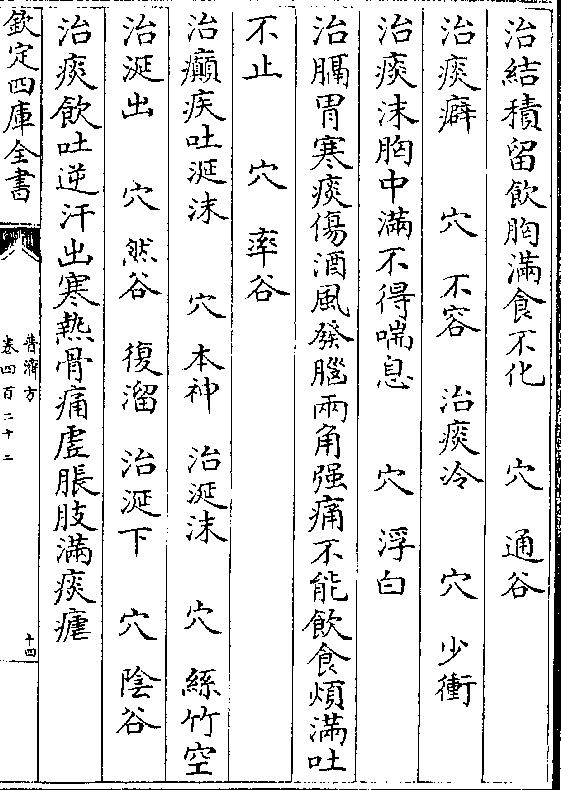 治結積留飲胸滿食不化　穴　通谷
治痰癖　穴　不容　治痰冷　穴　少衝
治痰沫胸中滿不得喘息　穴　浮白
治膈胃寒痰傷酒風發腦兩角强痛不能飲食煩滿吐
不止　穴　率谷
治癲疾吐涎沫　穴　本神　治涎沫　穴　絲竹空
治涎出　穴　然谷　復溜　治涎下　穴　陰谷
治痰飲吐逆汗出寒熱骨痛虚脹肢滿痰瘧
欽定四庫全書
普濟方
卷四百二十二
十四